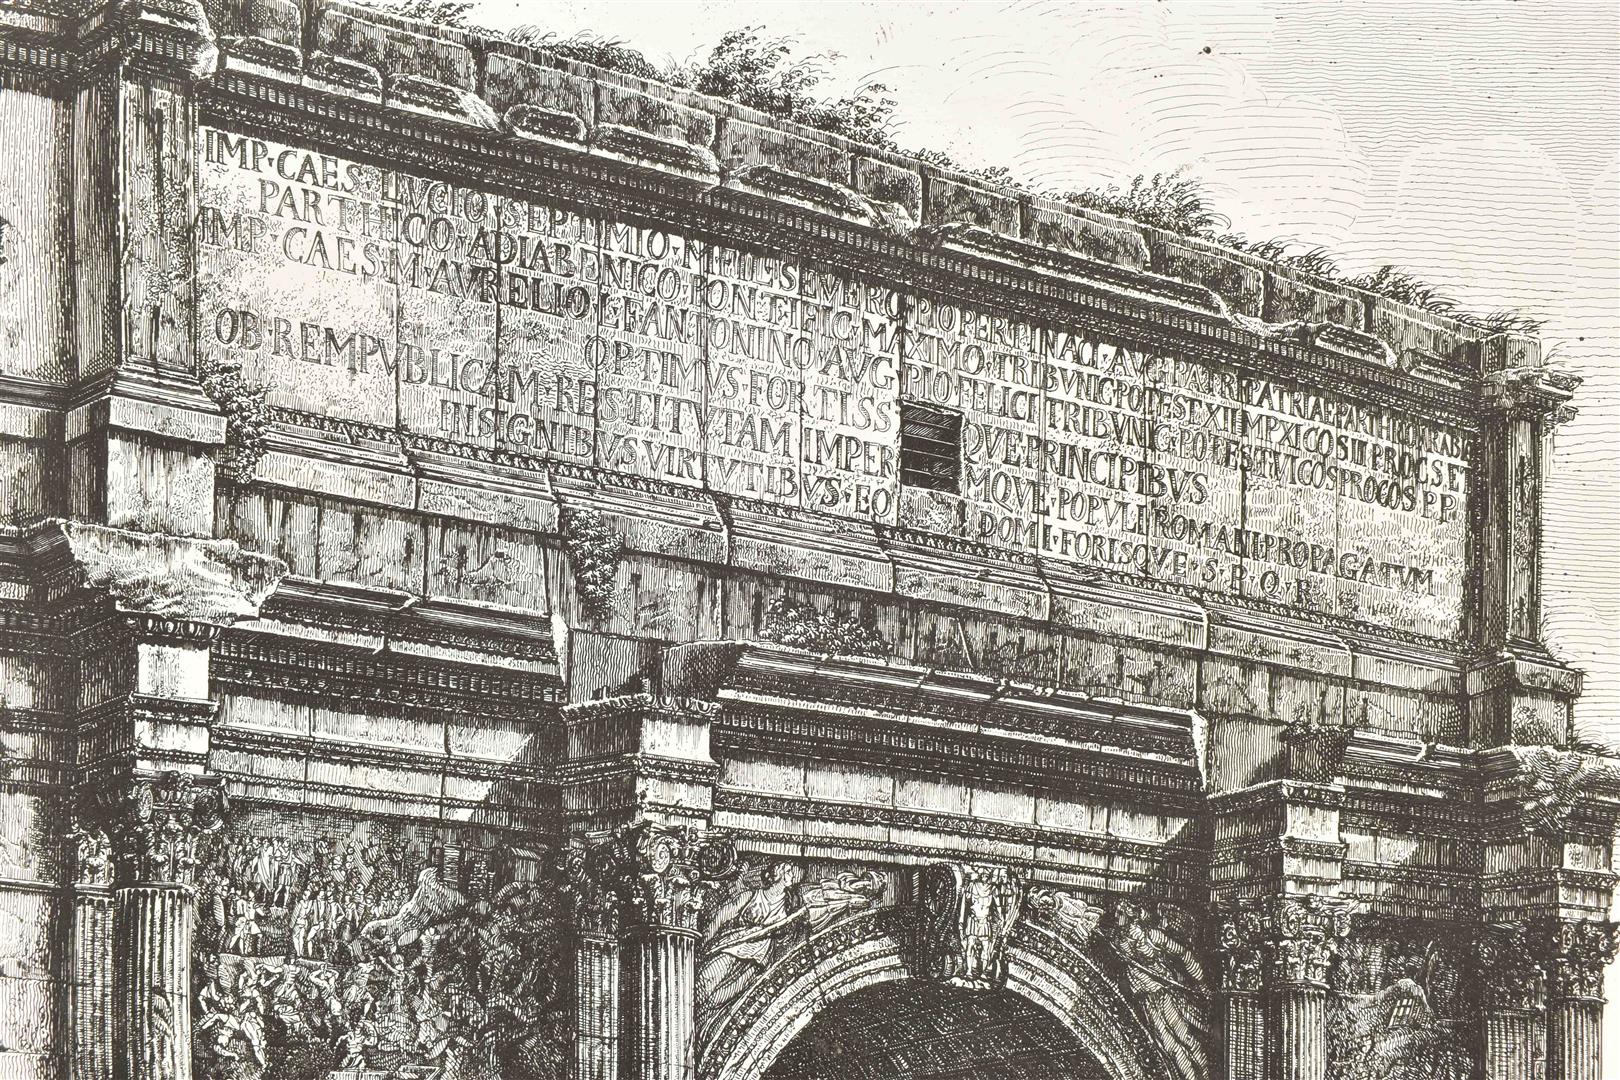 IMP·CAES·LVCIO·SEPTIMIO·M·FIL·SEVERO·PIO PERTINACI·AVG·PATRI PATRIAE PARTHICO ARABI
PARTHICO·ADIABENICO·PONTIFIC·MAXIMO·TRIBVNIC·POTEST XI IMP XI COS III PROC·S·ET
IMP·CAES·M·AVRELIO·L·F·ANTONINO·AVG PIO FELICI TRIBVNIC·POTEST VI COS PROCOS P·P
OPTIMVS·FORTISS QVE·PRINCIPIBVS
OB·REMPVBLICAM·RESTITVTAM IMPER MQVE·POPVLI ROMANI·PROPAGATVM
INSIGNIBVS VIRTVTIBVS·EO DOMI·FORISQVE·S·P·Q·R